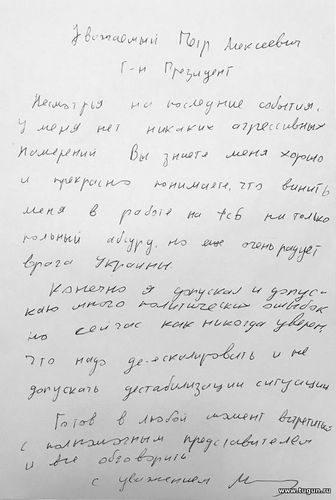 Уважаемый Петр Алексеевич
Г-н Президент
Несмотря на последние события,
у меня нет никаких агрессивных
намерений Вы знаете меня хорошо
и прекрасно понимаете, что винить
меня в работе на ФСБ не только
полный абсурд, но еще очень радует
врага Украины.
Конечно я допускал и допус-
каю много политических ошибок
но сейчас как никогда уверен
что надо де-эскалировать и не
допускать дестабилизации ситуации
Готов в любой момент встретится
с полномочным представителем
и все обговорить
с уважением
www.tugun.ru